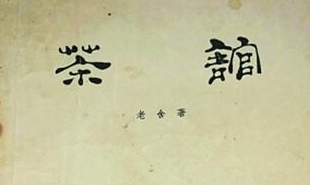 茶舘
老舍著